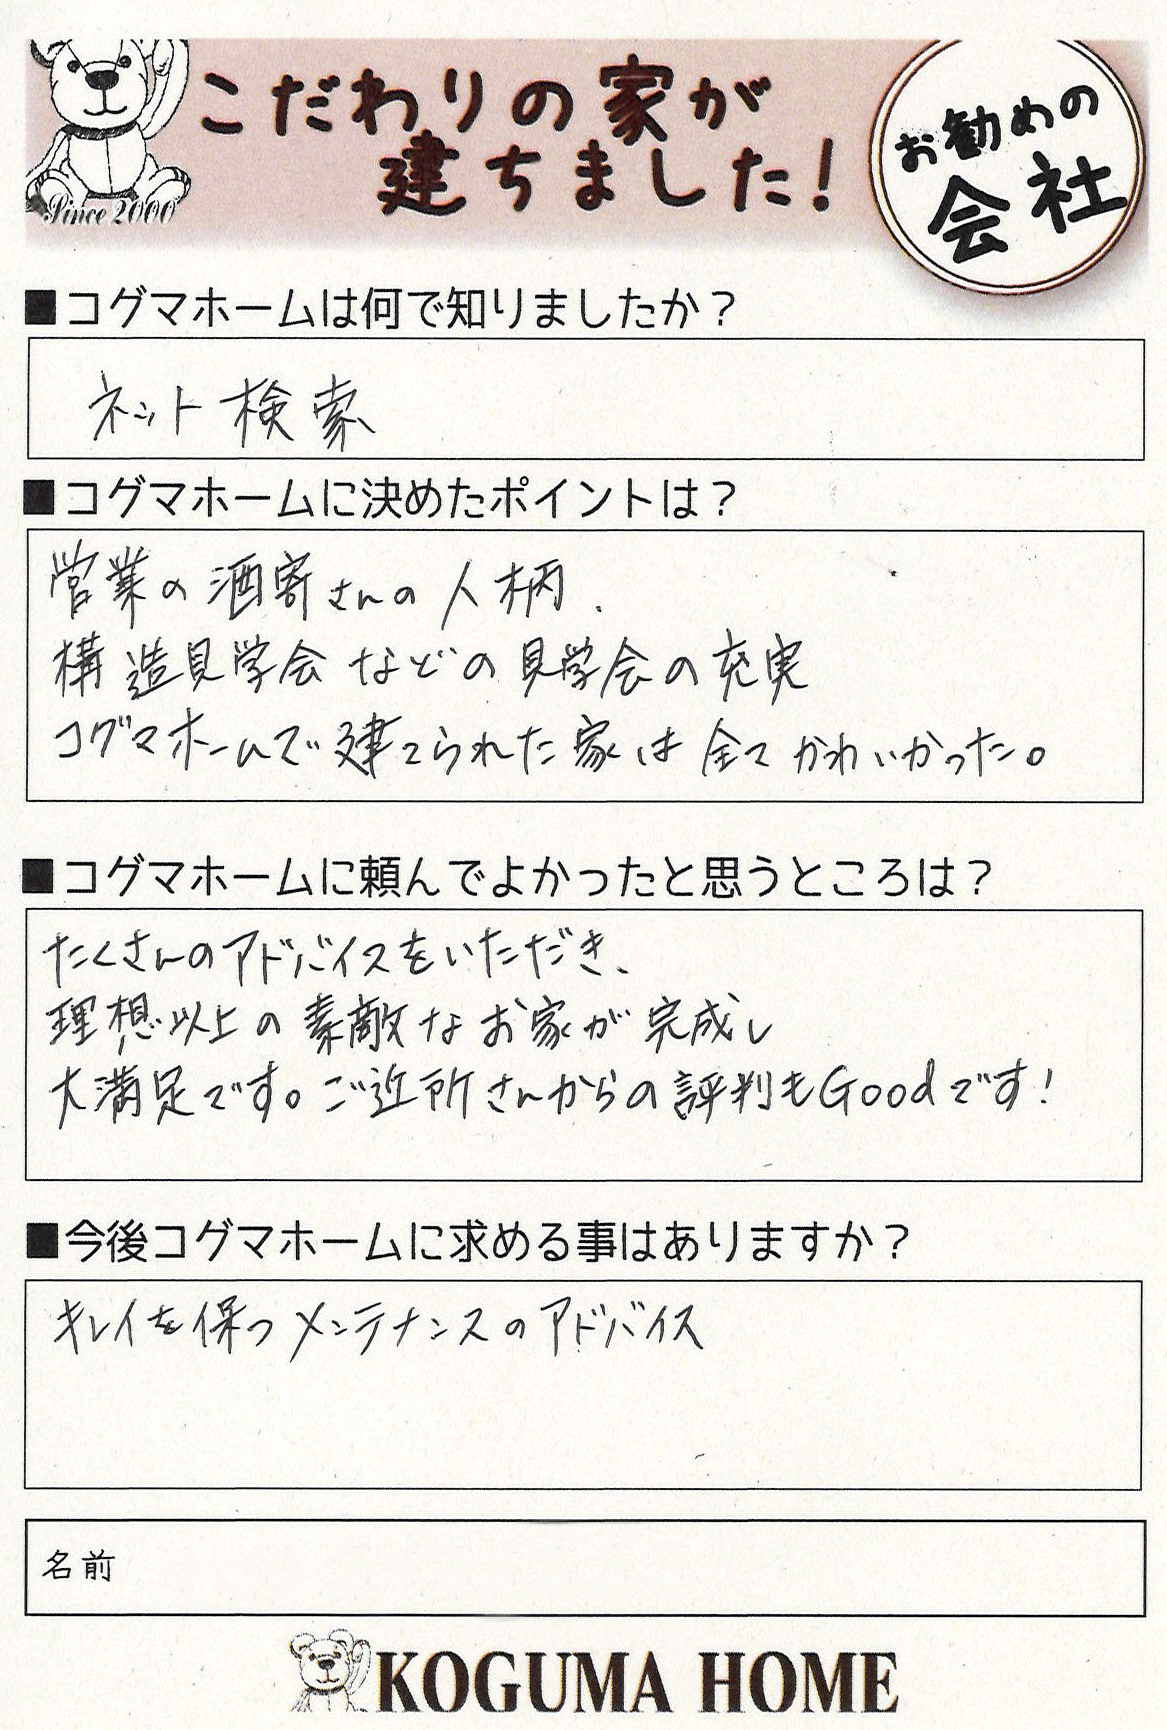 こだわりの家が
建ちました!
お勧めの
会社
Since 2000
■コグマホームは何で知りましたか?
ネット検索
■コグマホームに決めたポイントは?
営業の酒寄さんの人柄.
構造見学会などの見学会の充実
コグマホームで建てられた家は全てかわいかった。
■コグマホームに頼んでよかったと思うところは?
たくさんのアドバイスをいただき、
理想以上の素敵なお家が完成し
大満足です。ご近所さんからの評判もGoodです!
■今後コグマホームに求める事はありますか?
キレイを保つメンテナンスのアドバイス
名前
KOGUMA HOME